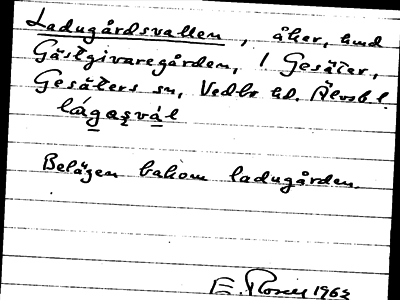 Ladugårdsvallen, åker, und
Gästgivaregården, 1 Gesäter,
Gesäters sn, Vedbo hd. Älvsb. l.
lágasvál
Belägen bakom ladugården.
E. 1962